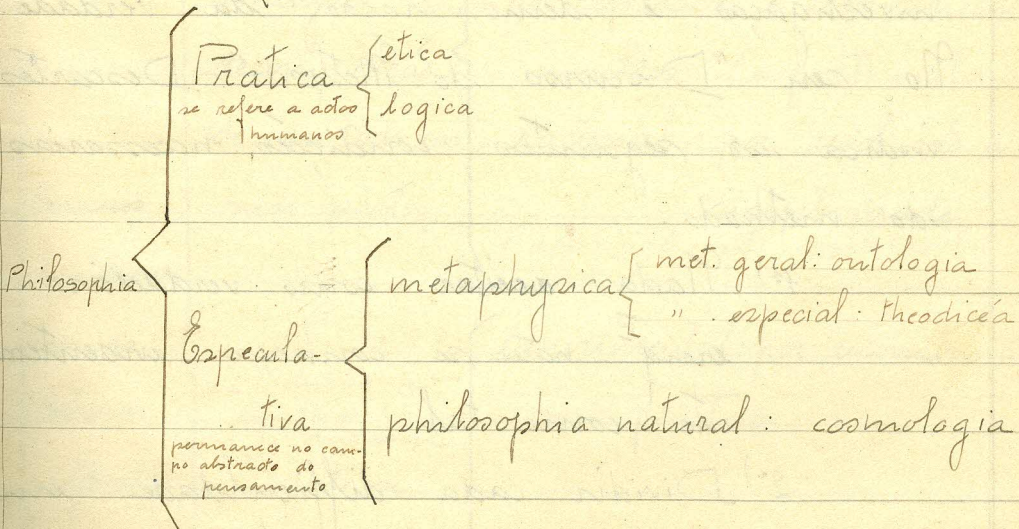 Philosophia
Pratica
se refere a actos
humanos
etica
logica
Especula-
tiva
permanece no cam-
po abstracto do
pensamento
metaphysica
met. geral: ontologia
" . especial : theodicéa
philosophia natural : cosmologia